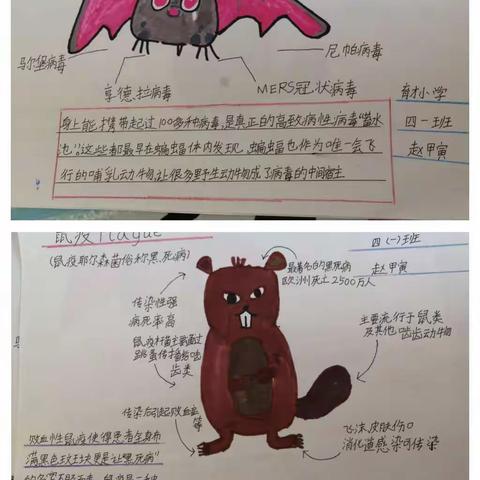 马尔堡病毒
尼帕病毒
亨德拉病毒
MERS冠状病毒
身上能携带超过100多种病毒,是真正的高致病性病毒"蓄水
池",这些都最早在蝙蝠体内发现,蝙蝠也作为唯一会飞
行的哺乳动物,让很多野生动物成了病毒的中间宿主
育才小学
四一班
赵甲寅
鼠疫 Plague
(鼠疫耶尔森菌俗称黑死病)
四(一)班
赵甲寅
最著名的黑死病
欧洲死亡2500万人
传染性强
病死率高
鼠疫杆菌主要通过
跳蚤传播给啮
齿类
主要流行于鼠类
及其他啮齿动物
传染后引起败血症
等
飞沫,皮肤伤口
消化道感染可传染
败血性鼠疫使得患者全身布
满黑色玫块更是让"黑死病"